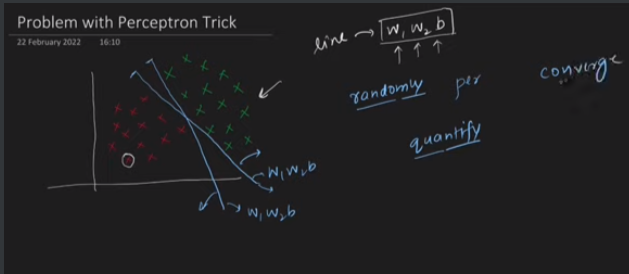 Problem with Perceptron Trick
22 February 2022 16:10
line → W₁ W₂ b
randomly per converge
quantify
W₁ W₂ b
W₁ W₂ b